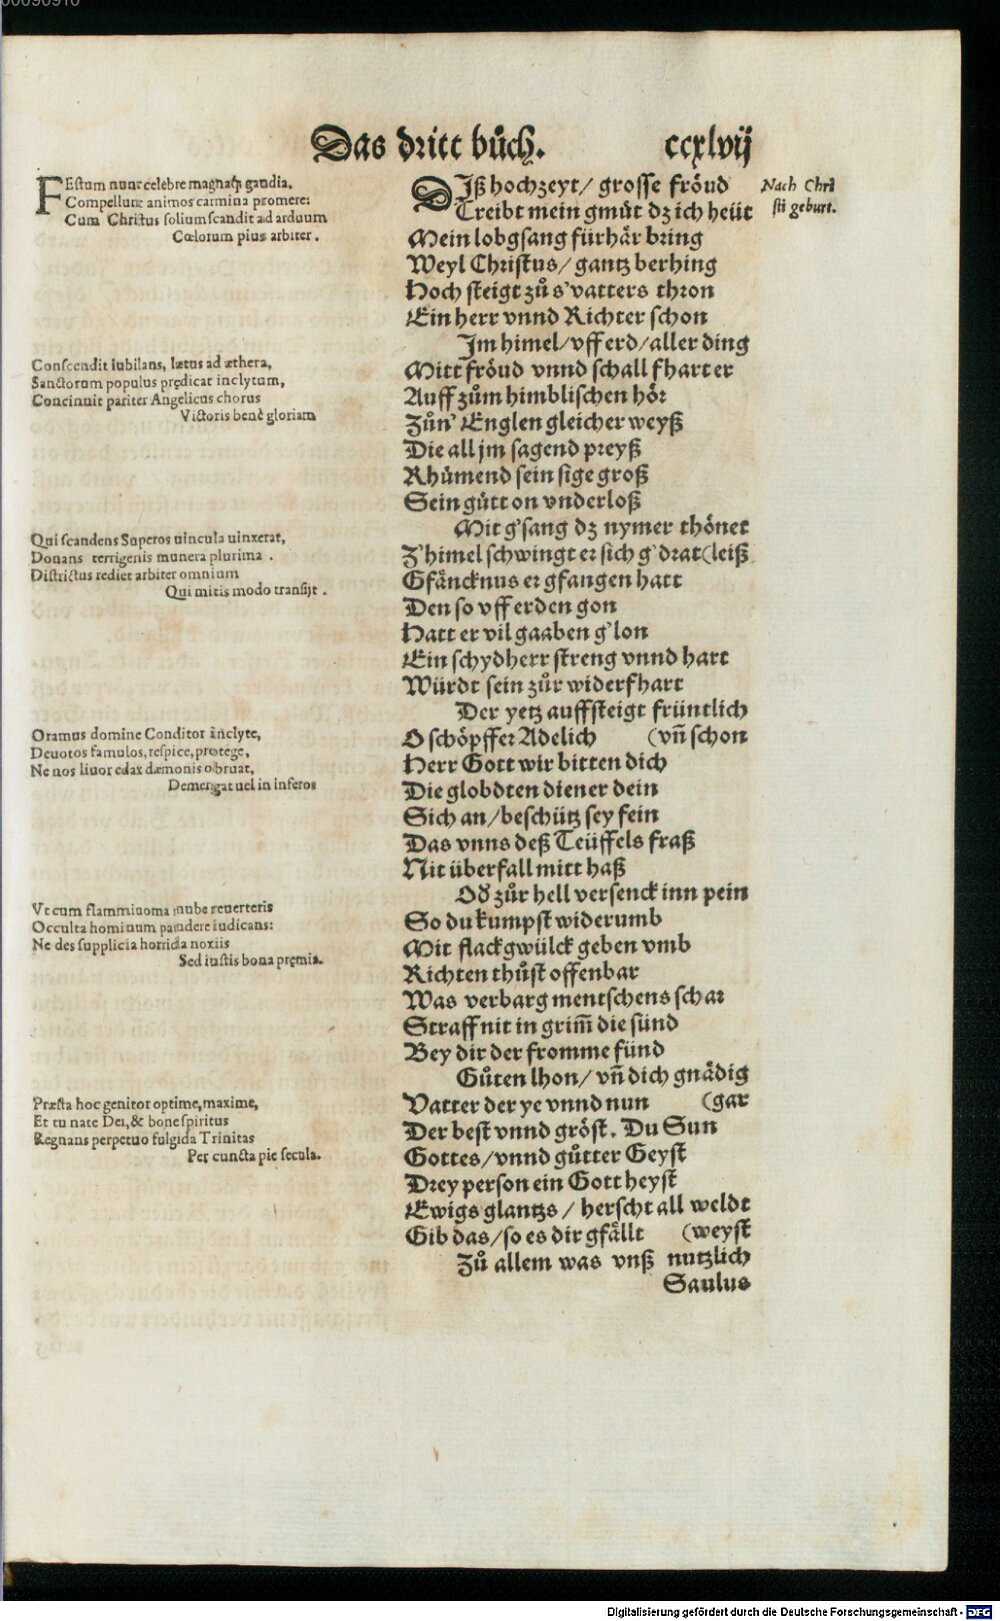 00090910
Das dritt bůch. ccxlvij
FEstum nunc celebre magnaq́; gaudia,
Compellunt animos carmina promere:
Cum Christus solium scandit ad arduum
Cœlorum pius arbiter.
Conscendit iubilans, lætus ad æthera,
Sanctorum populus prędicat inclytum,
Concinnit pariter Angelicus chorus
Victoris benè gloriam
Qui scandens Superos uincula uinxerat,
Donans terrigenis munera plurima.
Districtus rediet arbiter omnium
Qui mitis modo transijt.
Oramus domine Conditor inclyte,
Deuotos famulos, respice, protege,
Ne nos liuor edax dæmonis obruat,
Demergat uel in inferos
Vt cum flammiuoma nube reuerteris
Occulta hominum pandere iudicans:
Ne des supplicia horrida noxiis
Sed iustis bona pręmia.
Præsta hoc genitor optime, maxime,
Et tu nate Dei, & bone spiritus
Regnans perpetuo fulgida Trinitas
Per cuncta pie secula.
DIß hochzeyt/ grosse fröud
Treibt mein gmüt dz ich heüt
Mein lobgsang fürhär bring
Weyl Christus/ gantz berhing
Hoch steigt zů s'vatters thron
Ein herr vnnd Richter schon
Im himel/ vff erd/ aller ding
Mitt fröud vnnd schall fhart er
Auff zům himblischen hör
Zůn' Englen gleicher weyß
Die all jm sagend preyß
Rhümend sein sige groß
Sein gütt on vnderloß
Mit g'sang dz nymer thönet
Z'himel schwingt er sich g'drat (leiß
Gfäncknus er gfangen hatt
Den so vff erden gon
Hatt er vil gaaben g'lon
Ein schydherr streng vnnd hart
Würdt sein zůr widerfhart
Der yetz auffsteigt früntlich
O schöpffer Adelich (vñ schon
Herr Gott wir bitten dich
Die globdten diener dein
Sich an/ beschütz sey fein
Das vnns deß Teüffels fraß
Nit überfall mitt haß
Od' zůr hell versenck inn pein
So du kumpst widerumb
Mit flackgwülck geben vmb
Richten thůst offenbar
Was verbarg mentschens schar
Straff nit in grim̃ die sünd
Bey dir der fromme fünd
Gůten lhon/ vñ dich gnädig
Vatter der ye vnnd nun (gar
Der best vnnd gröst. Du Sun
Gottes/ vnnd gůtter Geyst
Drey person ein Gott heyst
Ewigs glantzs/ herscht all weldt
Gib das/ so es dir gfällt (weyst
Zů allem was vnß nutzlich
Saulus
Nach Chri
sti geburt.
Digitalisierung gefördert durch die Deutsche Forschungsgemeinschaft - DFG